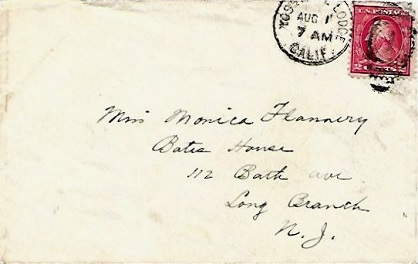 YOSEMITE LODGE
AUG 1
7 AM
CALIF.
U.S. POSTAGE
Miss Monica Flannery
Bates House
112 Bath ave
Long Branch
N. J.